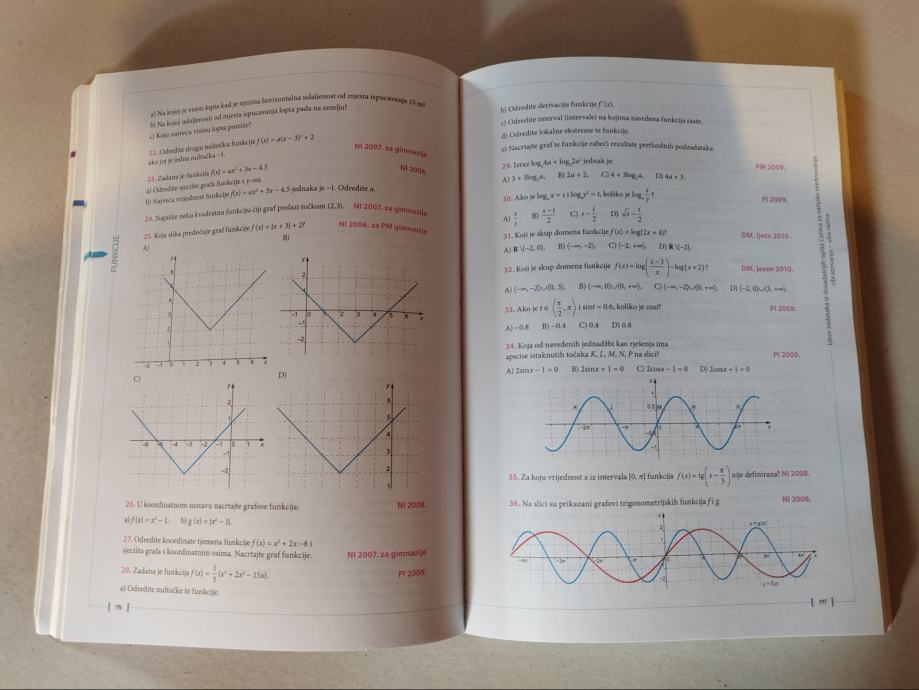 a) Na kojoj je visini lopta kad je njezina horizontalna udaljenost od mjesta ispucavanja 15 m?
b) Na kojoj udaljenosti od mjesta ispucavanja lopta pada na zemlju?
c) Koju najveću visinu lopta postiže?
22. Odredite drugu nultočku funkcije f(x) = a(x − 3)² + 2
ako joj je jedna nultočka −1. NI 2007. za gimnazije
23. Zadana je funkcija f(x) = ax² + 3x − 4.5 NI 2008.
a) Odredite sjecište grafa funkcije s y-osi.
b) Najveća vrijednost funkcije f(x) = ax² + 3x − 4.5 jednaka je −1. Odredite a.
24. Napišite neku kvadratnu funkciju čiji graf prolazi točkom (2,3). NI 2007. za gimnazije
25. Koja slika predočuje graf funkcije f(x) = |x + 3| + 2? NI 2006. za PM gimnazije
A) B)
C) D)
26. U koordinatnom sustavu nacrtajte grafove funkcija: NI 2008.
a) f(x) = x² − 1, b) g(x) = |x² − 1|.
27. Odredite koordinate tjemena funkcije f(x) = x² + 2x − 8 i
sjecišta grafa s koordinatnim osima. Nacrtajte graf funkcije. NI 2007. za gimnazije
28. Zadana je funkcija f(x) = 1/5 (x³ + 2x² − 15x). PI 2009.
a) Odredite nultočke te funkcije.
FUNKCIJE
b) Odredite derivaciju funkcije f'(x).
c) Odredite interval (intervale) na kojima navedena funkcija raste.
d) Odredite lokalne ekstreme te funkcije.
e) Nacrtajte graf te funkcije rabeći rezultate prethodnih podzadataka.
29. Izraz log₂4a + log₂2a² jednak je: PM 2009.
A) 3 + 3log₂a, B) 2a + 2, C) 4 + 3log₂a, D) 4a + 3.
30. Ako je x = s i y² = t, koliko je PI 2009.
A) s/t B) s−t/2 C) s − t/2 D) √s − t/2
31. Koji je skup domena funkcije f(x) = log(2x + 4)? DM, ljeto 2010.
A) R \{−2, 0}, B) ⟨−∞, −2⟩, C) ⟨−2, +∞⟩, D) R \{−2}.
32. Koji je skup domena funkcije f(x) = log((x−3)/x) − log(x + 2)? DM, jesen 2010.
A) ⟨−∞, −2⟩∪⟨0, 3⟩, B) ⟨−∞, 0⟩∪⟨0, +∞⟩, C) ⟨−∞, −2⟩∪⟨0, +∞⟩, D) ⟨−2, 0⟩∪⟨3, +∞⟩.
33. Ako je t ∈ ⟨π/2, π⟩ i sint = 0.6, koliko je cost? PI 2009.
A) −0.8 B) −0.4 C) 0.4 D) 0.8
34. Koja od navedenih jednadžbi kao rješenja ima
apscise istaknutih točaka K, L, M, N, P na slici? PI 2009.
A) 2sinx − 1 = 0 B) 2sinx + 1 = 0 C) 2cosx − 1 = 0 D) 2cosx + 1 = 0
35. Za koju vrijednost x iz intervala [0, π] funkcija f(x) = tg(x − π/3) nije definirana? NI 2008.
36. Na slici su prikazani grafovi trigonometrijskih funkcija f i g. NI 2008.
y = g(x)
y = f(x)
Izbor zadataka iz dosadašnjih ispita Centra za vanjsko vrednovanje
obrazovanja – viša razina